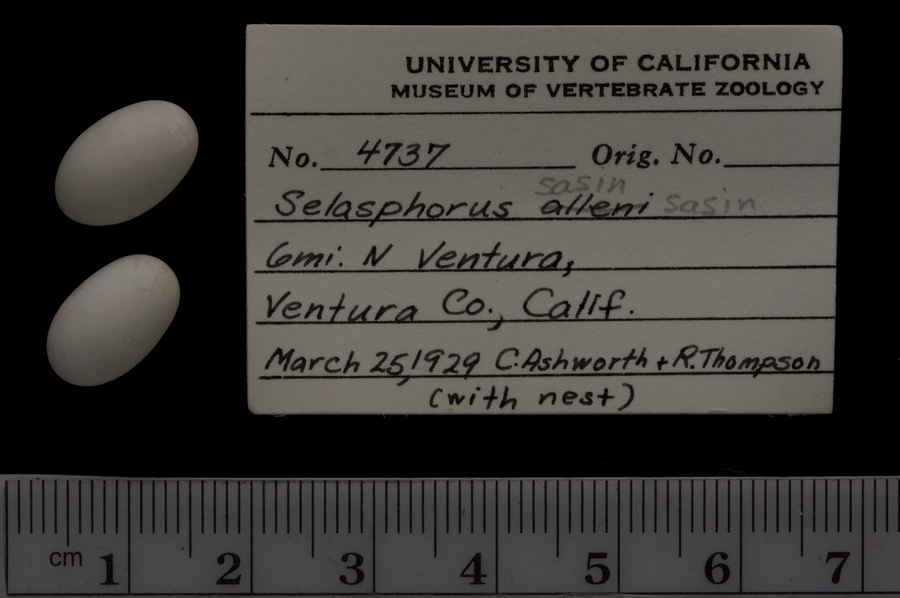 UNIVERSITY OF CALIFORNIA
MUSEUM OF VERTEBRATE ZOOLOGY
No. 4737 Orig. No.
sasin
Selasphorus alleni sasin
6mi. N Ventura,
Ventura Co., Calif.
March 25, 1929 C. Ashworth + R. Thompson
(with nest)
cm 1 2 3 4 5 6 7